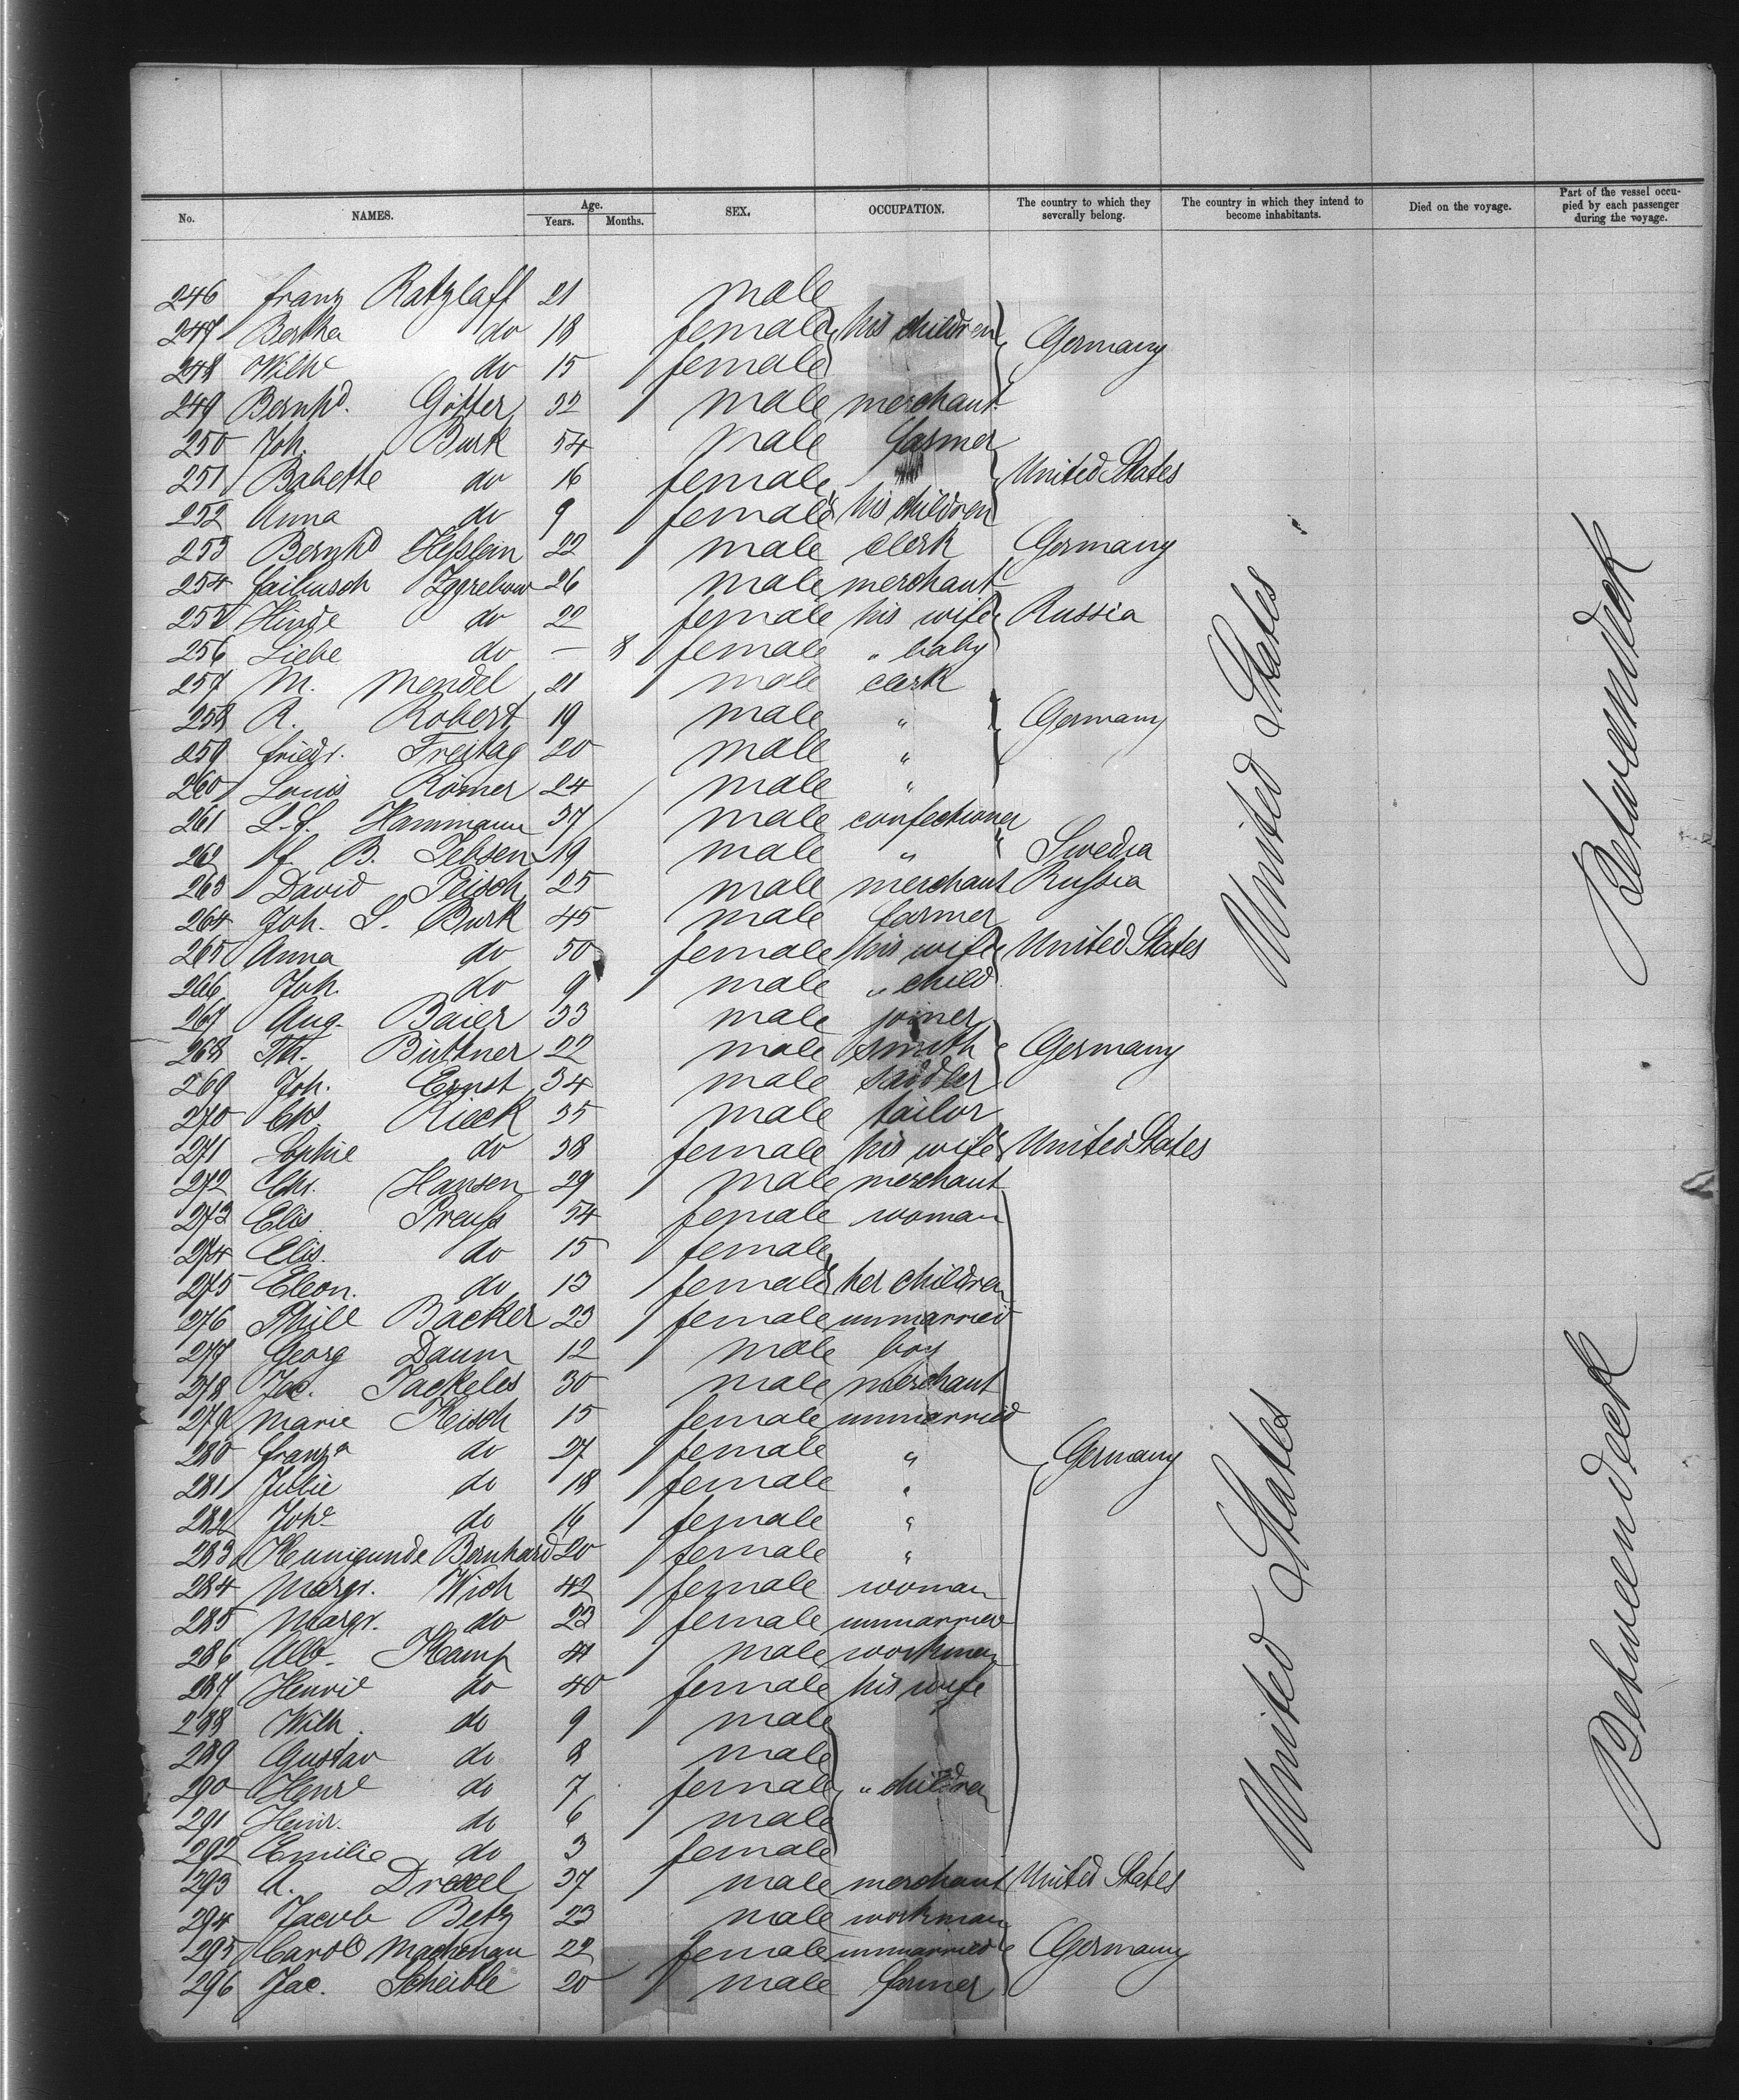 No. NAMES. Age. Years. Months. SEX. OCCUPATION. The country to which they severally belong. The country in which they intend to become inhabitants. Died on the voyage. Part of the vessel occupied by each passenger during the voyage.
246 Franz Ratzlaff 21 male
247 Bertha do 18 female his children Germany
248 Wilhe do 15 female
249 Bernhd. Götter 32 male merchant
250 Joh. Burk 54 male farmer
251 Babette do 16 female United States
252 Anna do 9 female his children
253 Bernhd Heßlein 22 male clerk Germany
254 Faibusch 26 male merchant
255 Hinde do 22 female his wife Russia
256 Liebe do — 8 female " baby
257 M. Mendel 21 male clerk
258 R. Robert 19 male " Germany
259 Friedr. Freitag 20 male "
260 Louis Römer 24 male "
261 L. S. Hammann 37 male confectioner
262 B. Jebsen 19 male " " Swedia
263 David Peisch 25 male merchant Russia
264 Joh. S. Burk 45 male farmer
265 Anna do 50 female his wife United States
266 Joh. do 9 male " child
267 Aug. Baier 33 male joiner
268 Th. Büttner 22 male smith Germany
269 Joh. Ernst 34 male saddler
270 Chs Rieck 35 male tailor
271 Sophie do 38 female his wife United States
272 Chr. Hansen 29 male merchant
273 Elis Preuß 54 female woman
274 Elis. do 15 female
275 Eleon. do 13 female her children
276 Phill Backer 23 female unmarried
277 Georg Daum 12 male boy
278 Jac. Jackeles 30 male merchant
279 Marie Kisch 15 female unmarried
280 Franza do 27 female " Germany
281 Julie do 18 female "
282 Johe do 16 female "
283 Kunigunde Bernhard 20 female "
284 Margr. Wich 42 female woman
285 Margr. do 23 female unmarried
286 Alb. Kamp 41 male workman
287 Henrie do 40 female his wife
288 Wilh. do 9 male
289 Gustav do 8 male
290 Henre do 7 female " children
291 Heinr. do 6 male
292 Emilie do 3 female
293 A. Drexel 37 male merchant United States
294 Jacob Betz 23 male workman
295 Carol. Machenau 22 female unmarried Germany
296 Jac. Scheible 20 male farmer
United States
Betweendeck
United States
Betweendeck